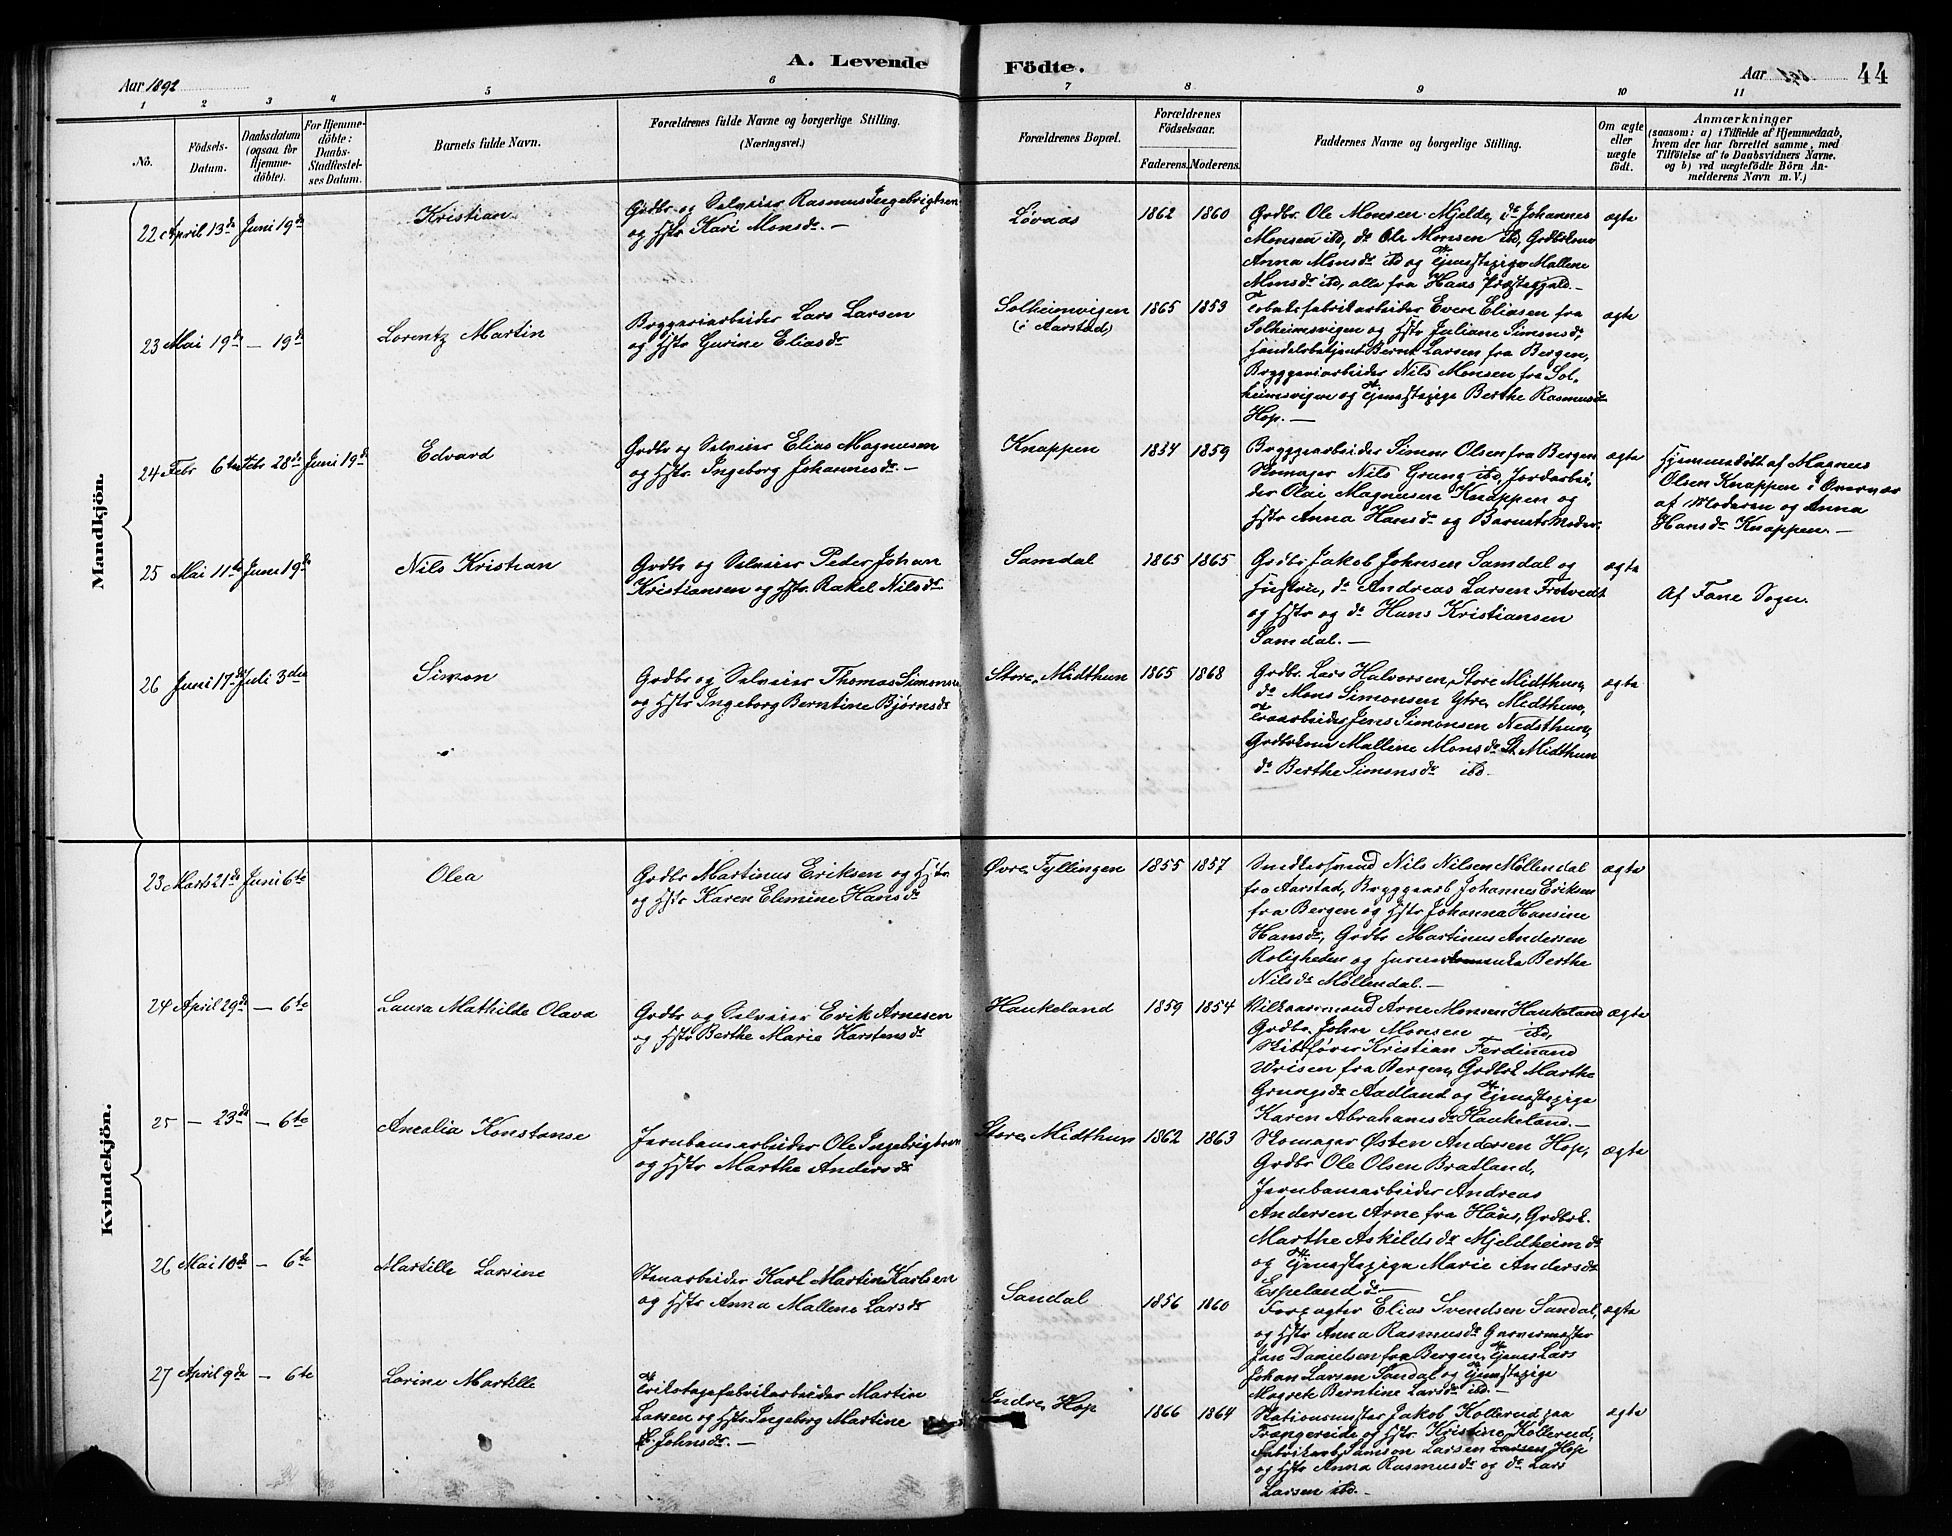 A. Levende Födte.
Aar 1892
Aar
44
1 2 3 4 5 6 7 8 9 10 11
No.
Födsels-
Datum.
Daabsdatum
(ogsaa for
Hjemme-
döbte).
For Hjemme-
döbte:
Daabs-
Stadfæstel-
ses Datum.
Barnets fulde Navn.
Forældrenes fulde Navne og borgerlige Stilling.
(Næringsvei.)
Forældrenes Bopæl.
Forældrenes
Födselsaar.
Faderens. Moderens.
Faddernes Navne og borgerlige Stilling.
Om ægte
eller
uægte
födt.
Anmærkninger
(saasom: a) i Tilfælde af Hjemmedaab,
hvem der har forrettet samme, med
Tilföielse af to Daabsvidners Navne.
og b) ved uægtefödte Börn An-
melderens Navn m. V.)
Mandkjön.
22 April 13de Juni 19de
Kristian
Grdbr. og Selveier Rasmus Ingebrigtsen
og Hstr. Kari Monsdr. —
Løvaas
1862 1860
Grdbr. Ole Monsen Mjelde, do Johannes
Monsen ibd, do Ole Monsen ibd, Grdbrkone
Anna Monsdr ibd og Tjenestepige Mallene
Monsdr ibd, alle fra Haus Præstegjæld. —
ægte
23 Mai 19de — 19de
Lorentz Martin
Bryggeriarbeider Lars Larsen
og Hstr Gurine Eliasdr
Solheimsvigen
(i Aarstad)
1865 1853
Tobaksfabrikarbeider Evert Eliasen fra
Solheimsvigen og Hstr Juliane Simonsdr,
Handelsbetjent Bernt Larsen fra Bergen,
Bryggeriarbeider Nils Monsen fra Sol-
heimsvigen og Tjenestepige Berthe Rasmusdr
Hop. —
ægte
24 Febr 6te Febr 28de Juni 19de
Edvard
Grdbr og Selveier Elias Magnusen
og Hstr. Ingeborg Johannesdr. —
Knappen
1834 1859
Bryggearbeider Simon Olsen fra Bergen
Skomager Nils Grung ibd, Jordarbei-
der Olai Magnusen Knappen og
Hstr Anna Hansdr og Barnets Moder.
ægte
Hjemmedøbt af Magnus
Olsen Knappen i Overvær
af Moderen og Anna
Hansdr Knappen. —
25 Mai 11te Juni 19de
Nils Kristian
Grdbr og Selveier Peder Johan
Kristiansen og Hstr. Rakel Nilsdr.
Samdal
1865 1865
Grdbr Jakob Johnsen Samdal og
Hustru, do Andreas Larsen Frotvedt
og Hstr og do Hans Kristiansen
Samdal. —
ægte
Af Fane Sogn.
26 Juni 17de Juli 3die
Simon
Grdbr og Selveier Thomas Simonsen
og Hstr Ingeborg Berntine Bjørnsdr
Store Midthun
1865 1868
Grdbr. Lars Halvorsen, Store Midthun,
do Mons Simonsen Ytre Midthun,
Træarbeider Jens Simonsen Nedsthun,
Grdbrkone Mallene Monsdr St. Midthun
do Berthe Simonsdr ibd.
ægte
Kvindekjön.
23 Marts 21de Juni 6te
Olea
Grdbr Martinus Eriksen og Hstr
og Hstr Karen Elemine Hansdr
Øvre Fyllingen
1855 1857
Snedkersvend Nils Nilsen Møllendal
fra Aarstad, Bryggearb Johannes Eriksen
fra Bergen og Hstr Johanna Hansine
Hansdr, Grdbr Martinus Andersen
Roligheden og Berthe
Nilsdr Møllendal. —
ægte
24 April 29de — 6te
Laura Mathilde Olava
Grdbr og Selveier Erik Arnesen
og Hstr Berthe Marie Karstensdr
Haukeland
1859 1854
Vilkaarsmand Arne Monsen Haukeland
Grdbr. John Monsen ibd,
Skibsfører Kristian Ferdinand
Wrisen fra Bergen, Grdbrk Marthe
Grungsdr Aadland og Tjenestepige
Karen Abrahamsdr Haukeland. —
ægte
25 — 23de — 6te
Amalia Konstanse
Jernbanearbeider Ole Ingebrigtsen
og Hstr Marthe Andersdr
Store Midthun
1862 1863
Skomager Østen Andersen Hop,
Grdbr Ole Olsen Bratland,
Jernbanearbeider Andreas
Andersen Arne fra Haus, Grdbrk.
Marthe Askildsdr Mjeldheim do
og Tjenestepige Marie Andersdr
Espeland do —
ægte
26 Mai 10de — 6te
Martille Larsine
Stenarbeider Karl Martin Karlsen
og Hstr Anna Mallene Larsdr
Sandal
1856 1860
Forpagter Elias Svendsen Sandal,
og Hstr Anna Rasmusdr Garvermester
Jan Danielsen fra Bergen, Tjener Lars
Johan Larsen Sandal og Tjenestepige
Magrete Berntine Larsdr ibd. —
ægte
27 April 9de — 6te
Lorine Martille
Trikotagefabrikarbeider Martin
Larsen og Hstr Ingeborg Martine
Johnsdr. —
Indre Hop
1866 1864
Stationsmester Jakob Kollerud paa
Trengereide og Hstr Kristine Kollerud,
Fabrikarb. Samson Larsen Hop
og Hstr Anna Rasmusdr og do Lars
Larsen ibd. —
ægte